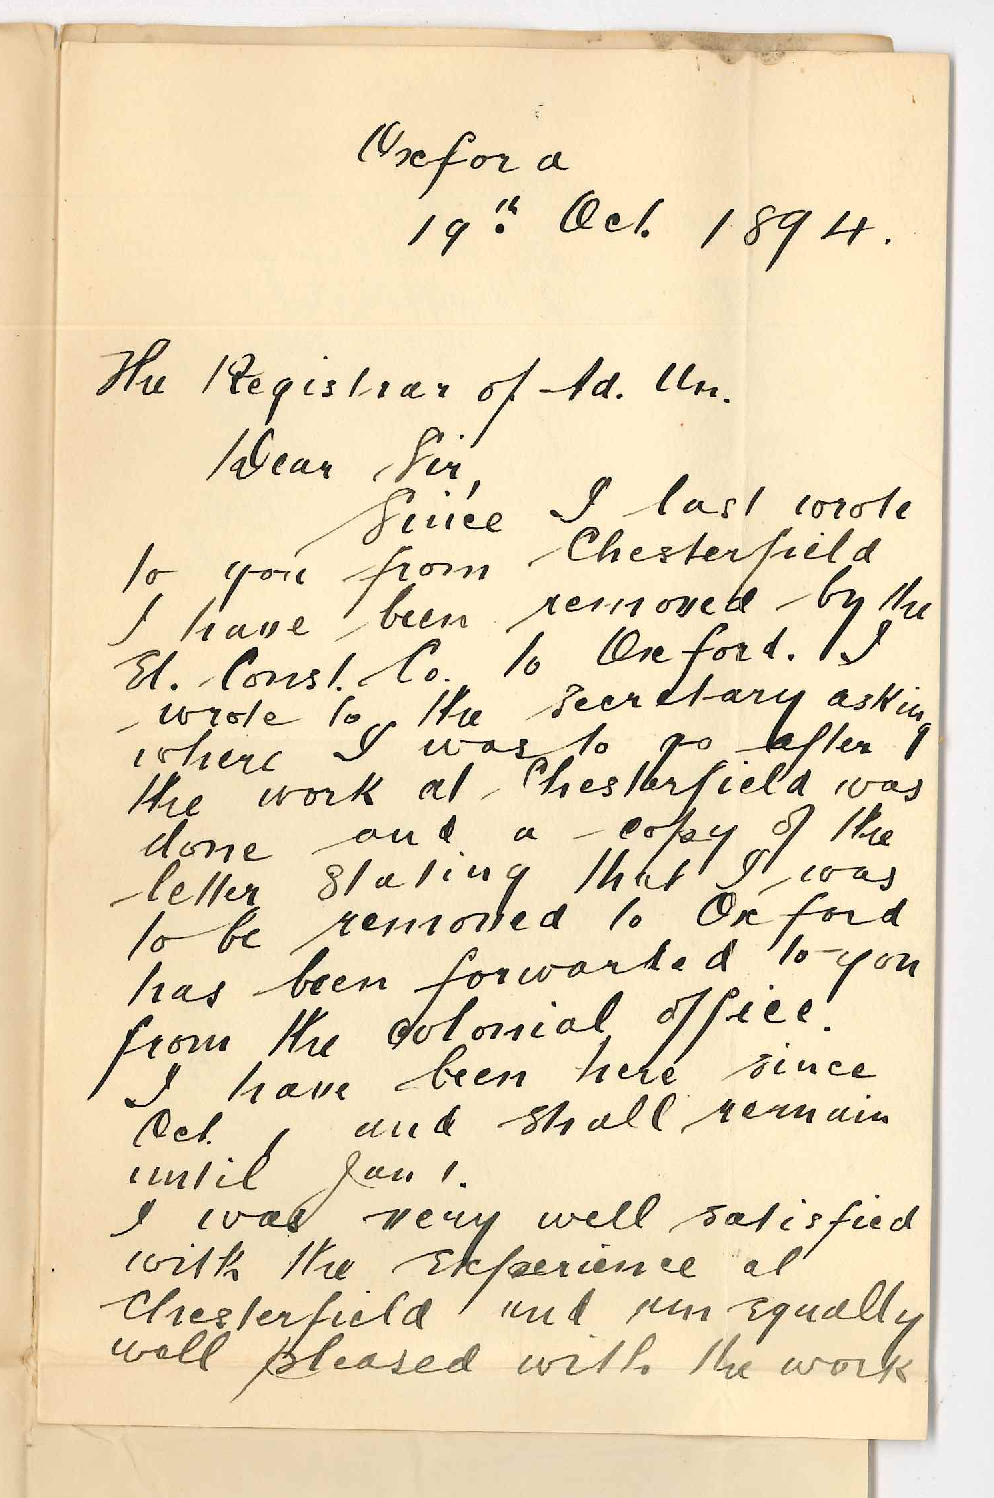 Oxford
19th Oct. 1894.
The Registrar of Ad. Un.
Dear Sir,
Since I last wrote
to you from Chesterfield
I have been removed by the
El. Const. Co. to Oxford. I
wrote to the secretary asking
where I was to go after
the work at Chesterfield was
done and a copy of the
letter stating that I was
to be removed to Oxford
has been forwarded to you
from the colonial office.
I have been here since
Oct. 1 and shall remain
until Jan 1.
I was very well satisfied
with the experience at
Chesterfield and am equally
well pleased with the work